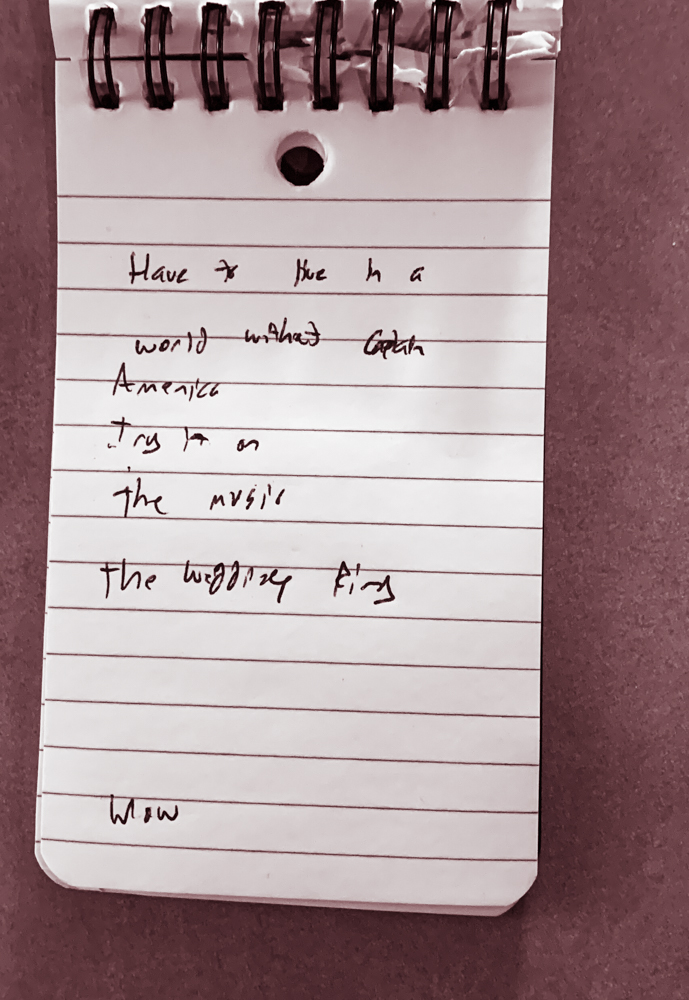 Have to live in a
world without Captain
America
Try it on
the music
the wedding Ring
Wow